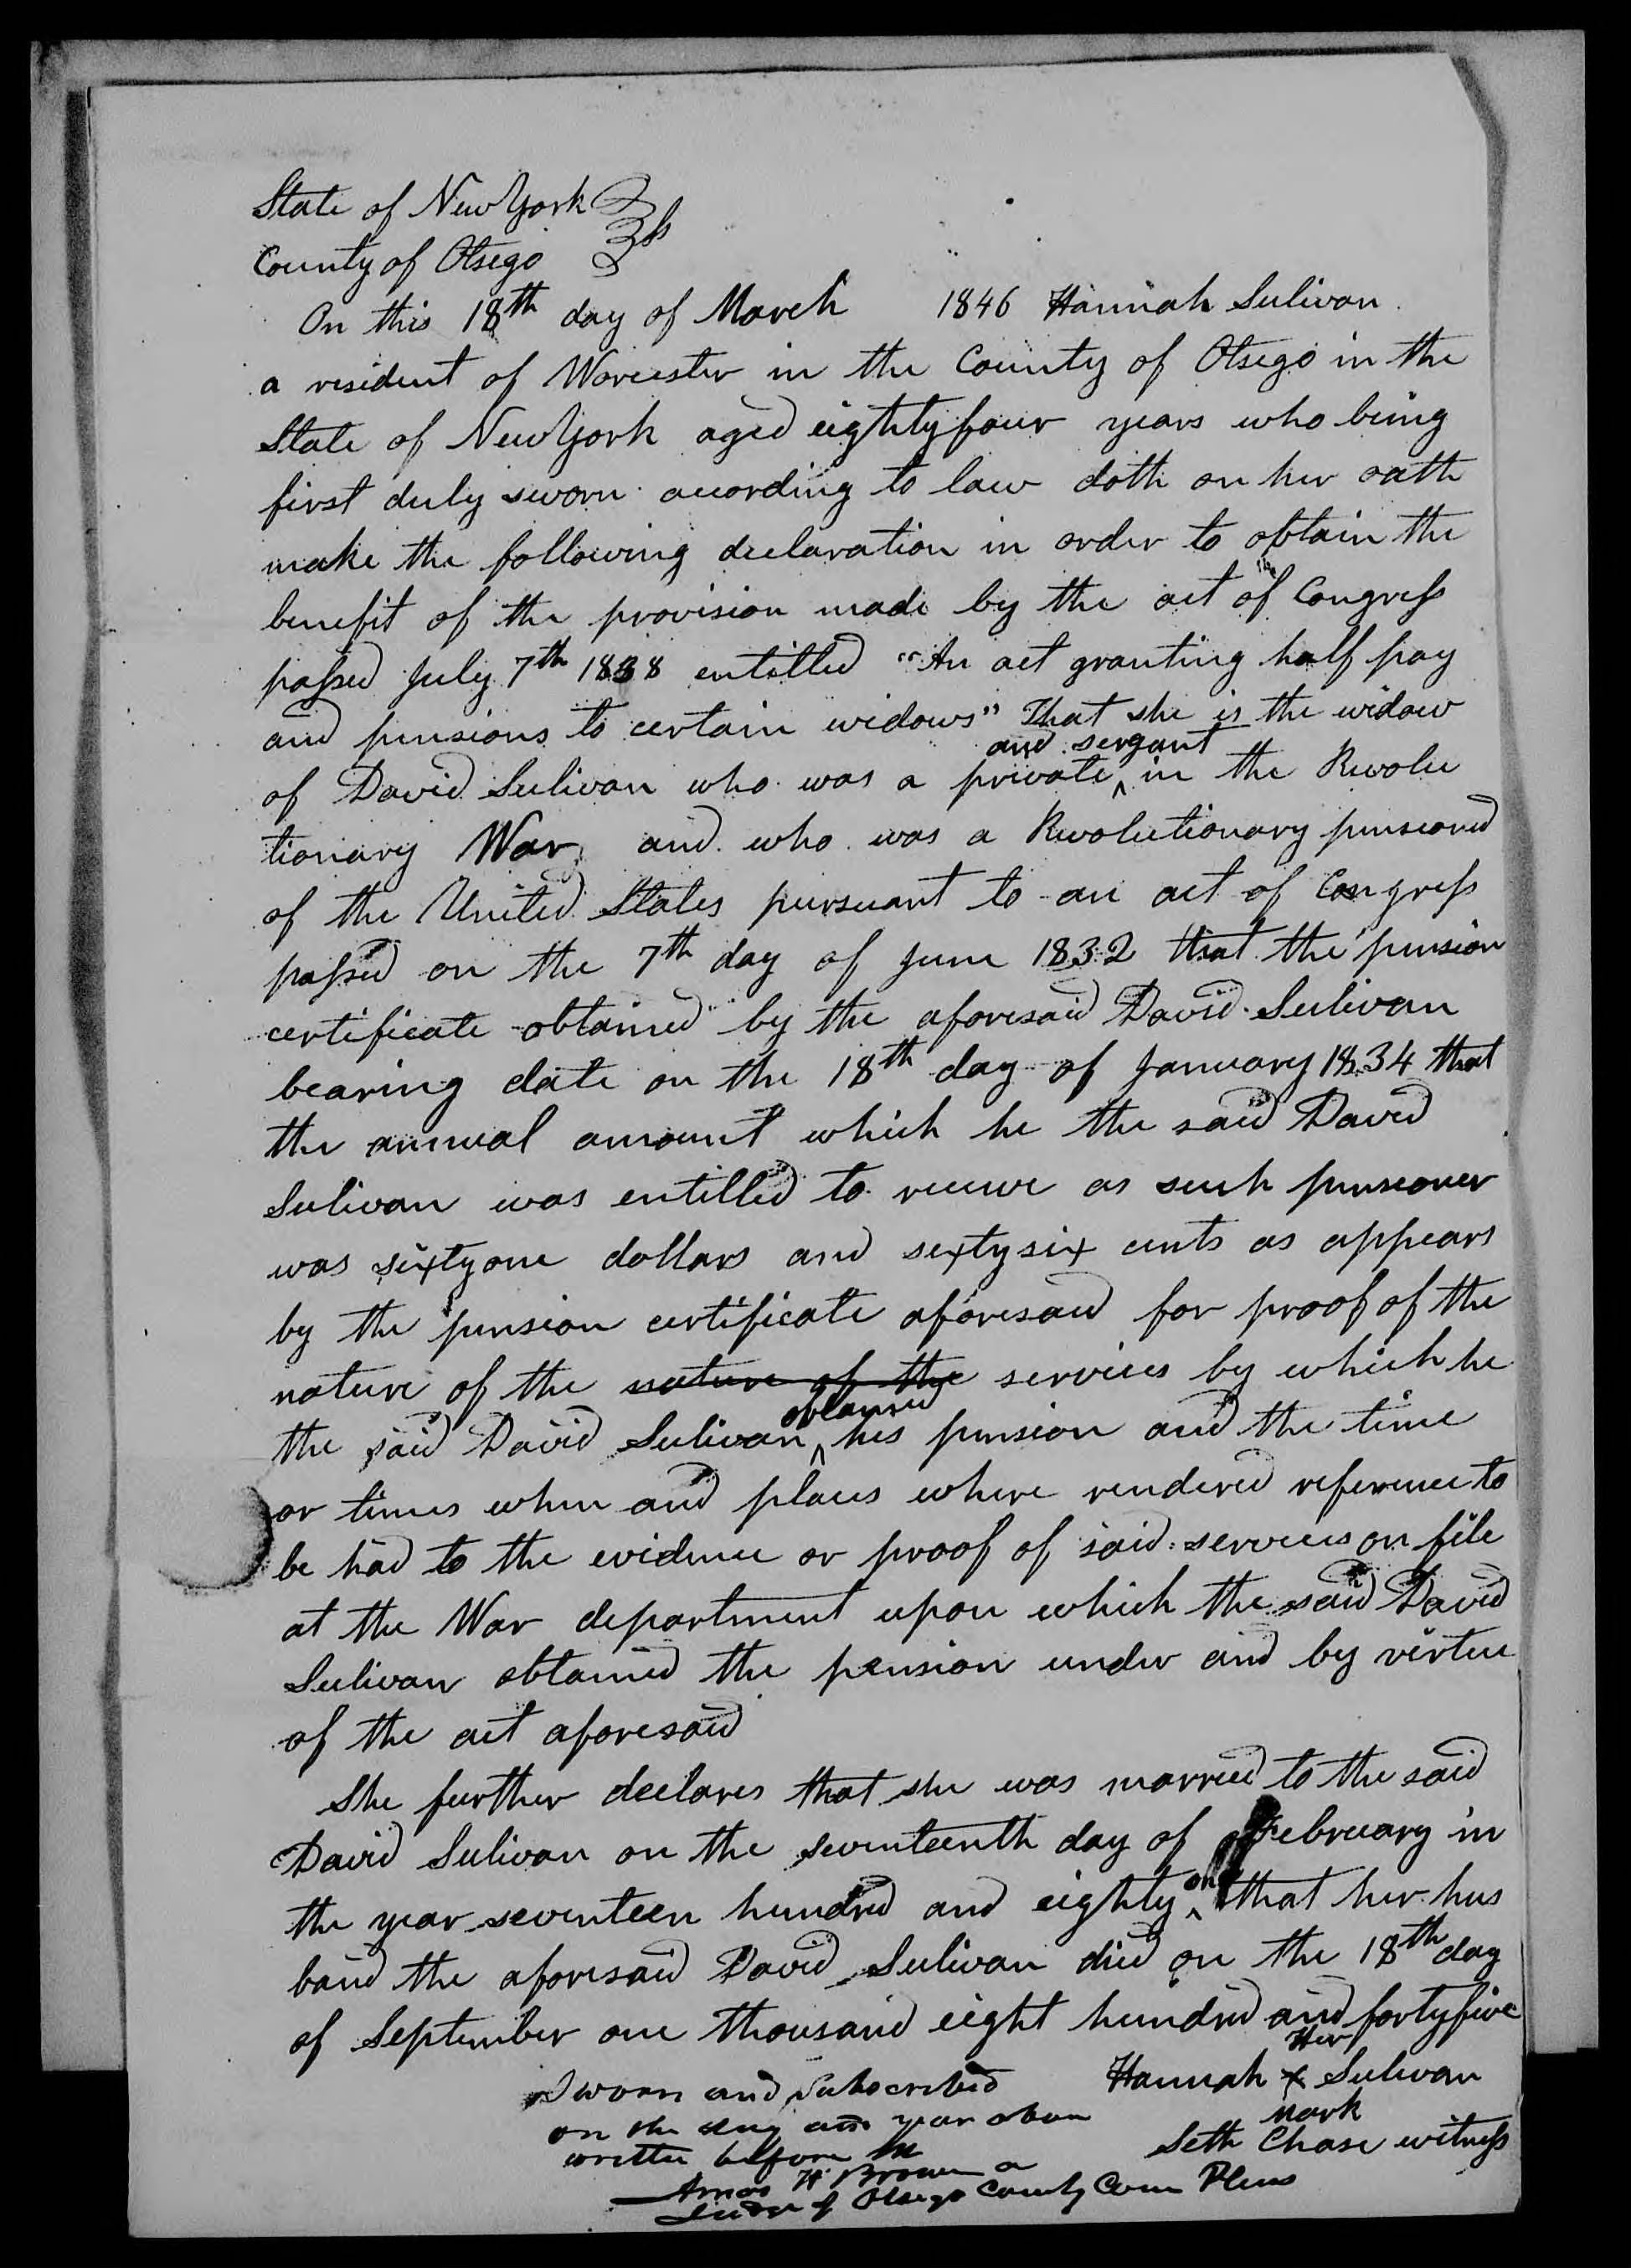 State of New York } ss
County of Otsego }
On this 18th day of March 1846 Hannah Sulivan
a resident of Worcester in the County of Otsego in the
State of New York aged eightyfour years who being
first duly sworn according to law doth on her oath
make the following declaration in order to obtain the
benefit of the provision made by the act of the Congress
passed July 7th 1838 entitled "An act granting half pay
and pensions to certain widows" That she is the widow
of David Sulivan who was a private and sergant in the Revolu
tionary War and who was a Revolutionary pensioned
of the United States pursuant to an act of Congress
passed on the 7th day of June 1832 that the pension
certificate obtained by the aforesaid David Sulivan
bearing date on the 18th day of January 1834 that
the annual amount which he the said David
Sulivan was entitled to receive as such penseoner
was sixtyone dollars and sextysix cents as appears
by the pension certificate aforesaid for proof of the
nature of the nature of the services by which he
the said David Sulivan obtained his pension and the time
or times when and places where rendered reference to
be had to the evidence or proof of said services on file
at the War department upon which the said David
Sulivan obtained the pension under and by virtue
of the act aforesaid
She further declares that she was married to the said
David Sulivan on the seventeenth day of February in
the year seventeen hundred and eighty one that her hus
band the aforesaid David Sulivan died on the 18th day
of September one thousand eight hundred and fortyfive
Sworn and Subscribed
on the day and year above
written before me
Amos H Brown a
Judge of Otsego County Com Pleas
Her
Hannah x Sulivan
Mark
Seth Chase witness